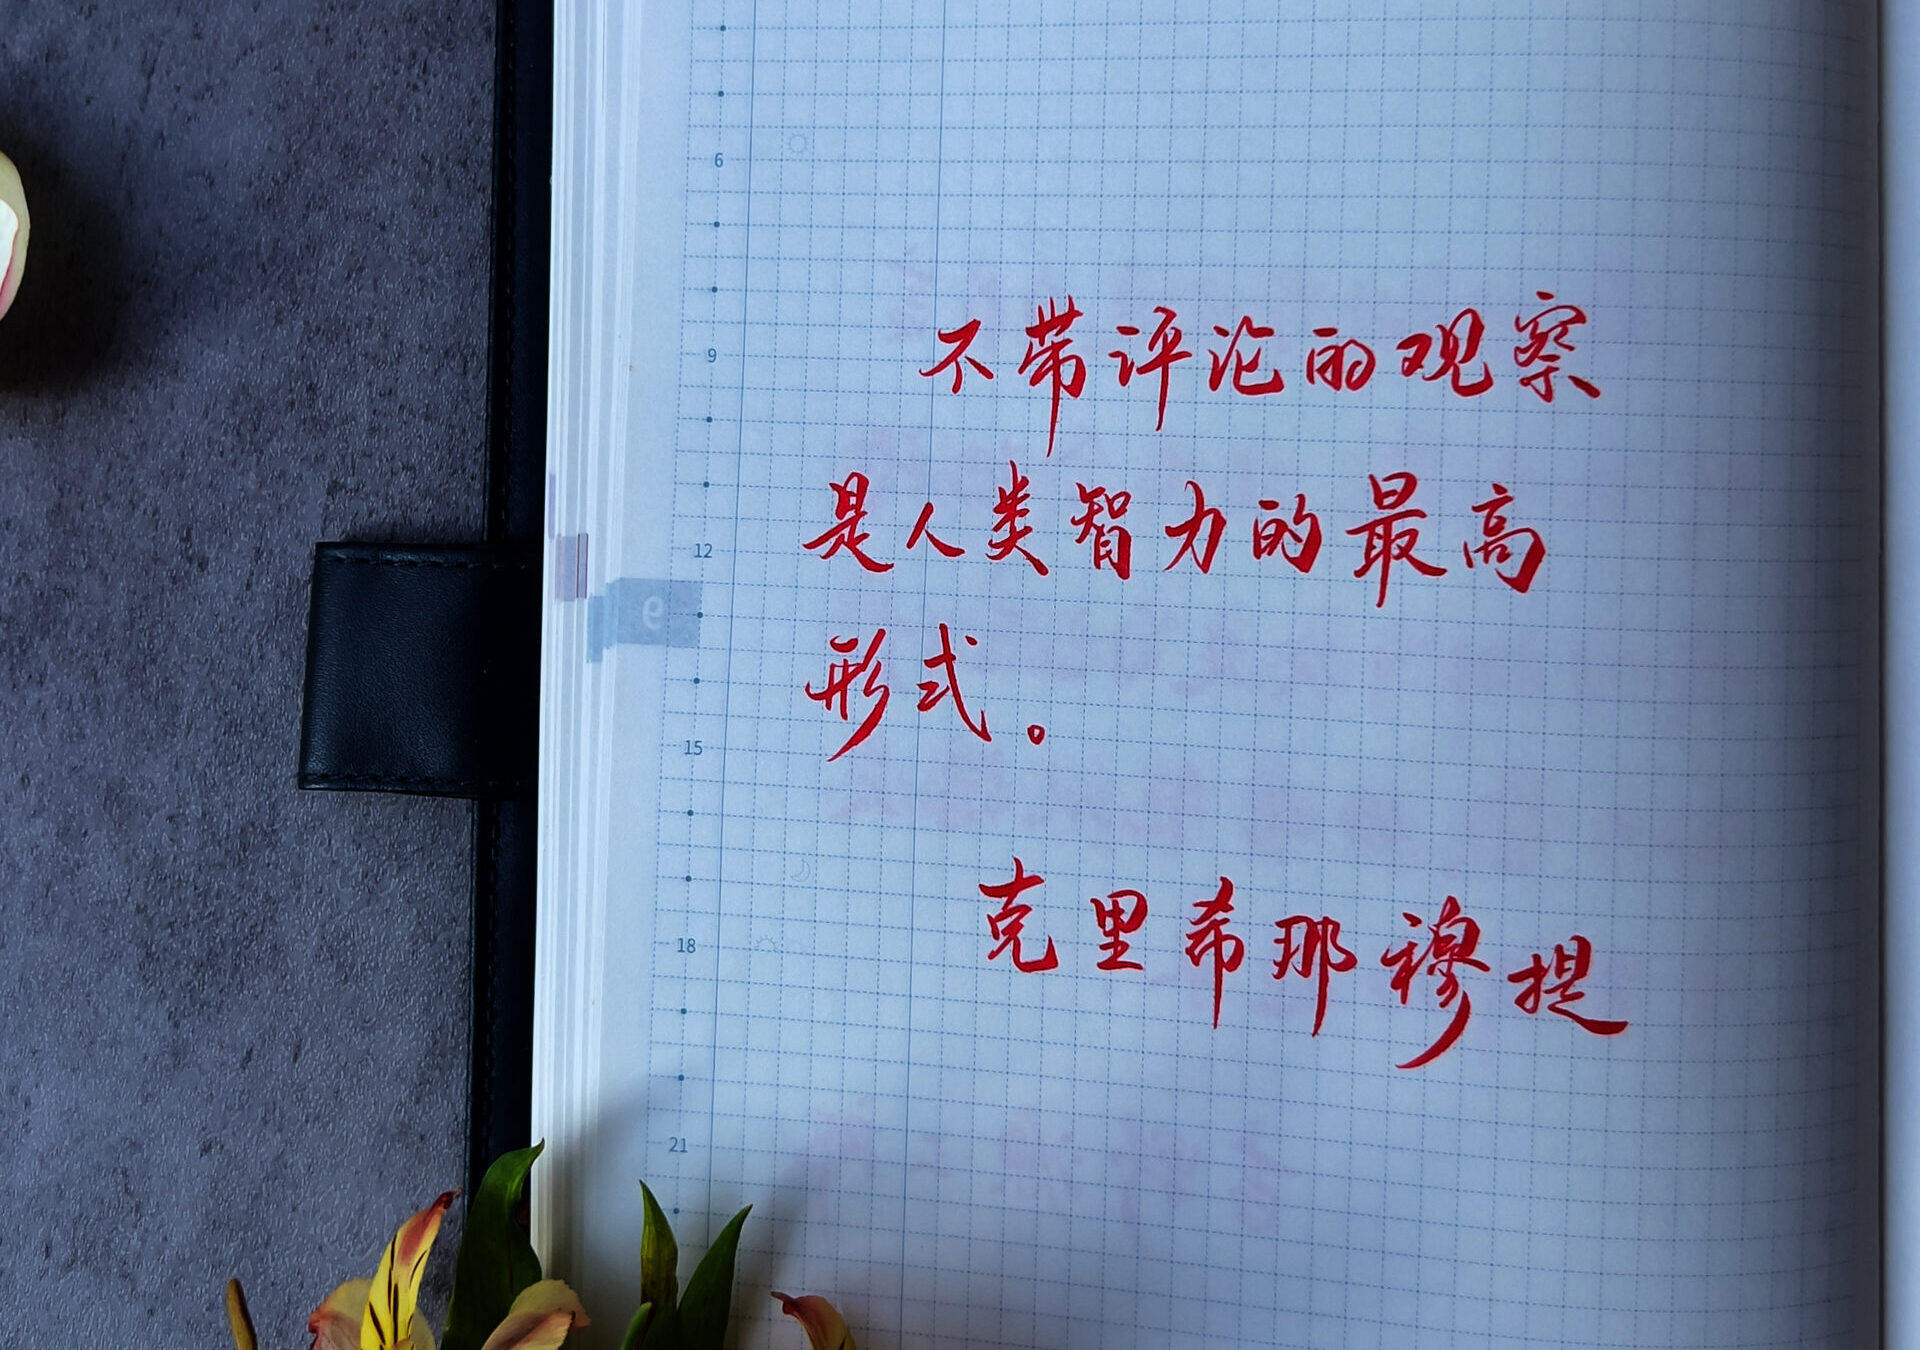 6
9
不带评论的观察
是人类智力的最高
12
9
形式。
15
克里希那穆提
18
21